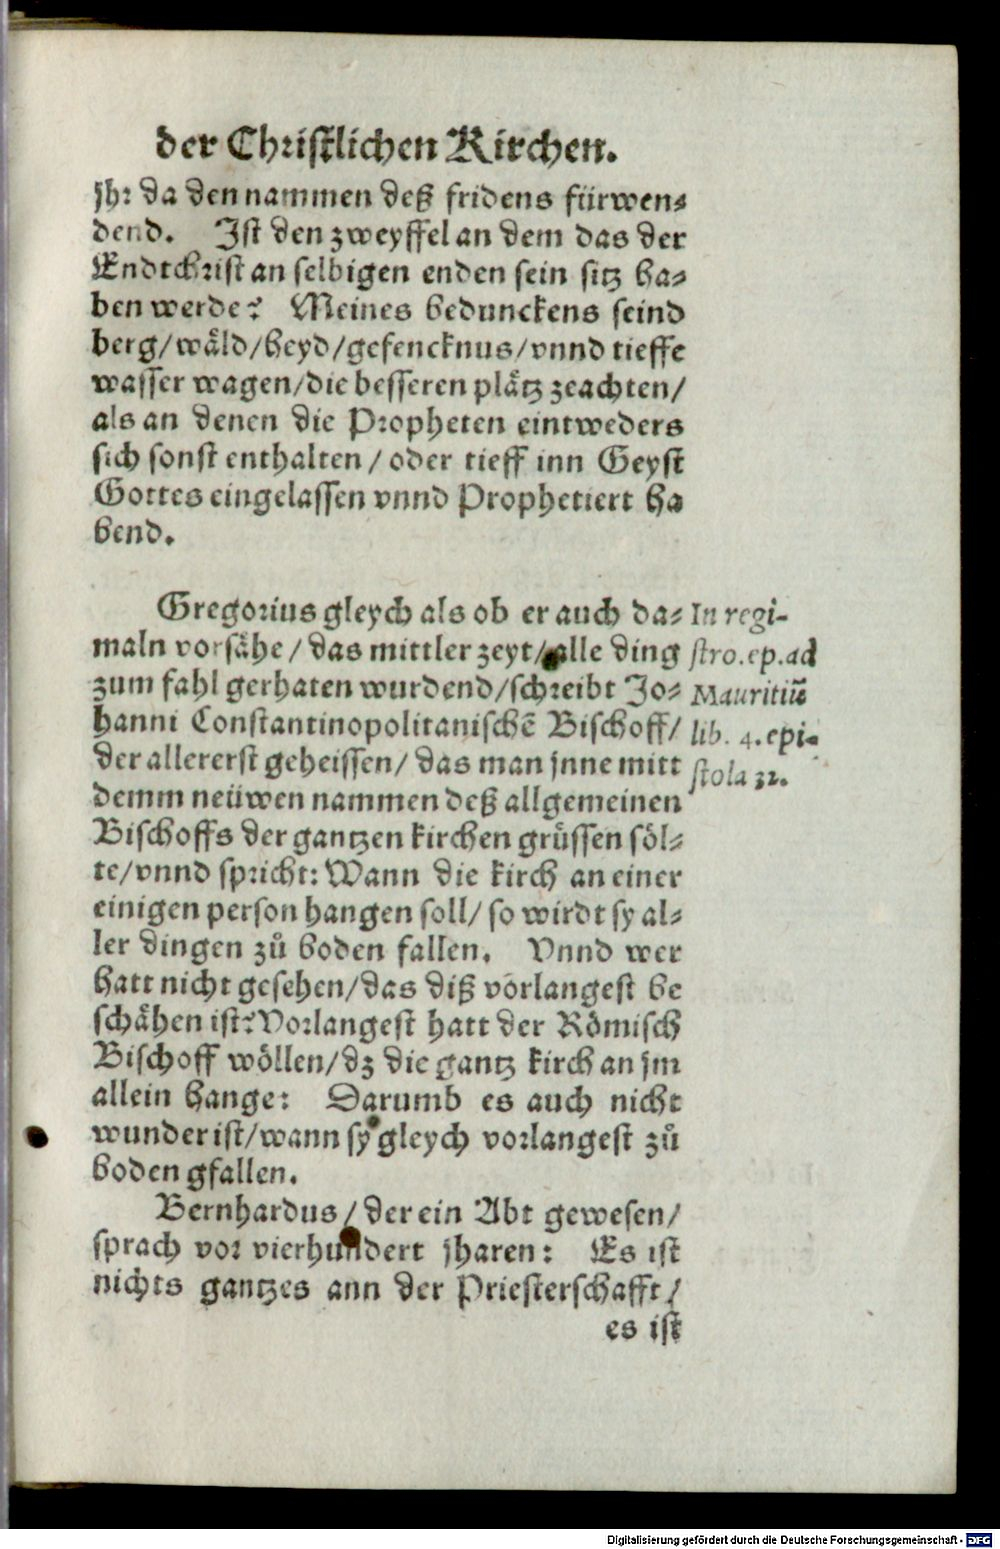 der Christlichen Kirchen.
jhr da den nammen deß fridens fürwen-
dend. Ist den zweyffel an dem das der
Endtchrist an selbigen enden sein sitz ha-
ben werde? Meines bedunckens seind
berg/wäld/heyd/gefencknus/vnnd tieffe
wasser wagen/die besseren plätz zeachten/
als an denen die Propheten eintweders
sich sonst enthalten/oder tieff inn Geyst
Gottes eingelassen vnnd Prophetiert ha
bend.
Gregorius gleych als ob er auch da-
maln vorsähe/das mittler zeyt/alle ding
zum fahl gerhaten wurdend/schreibt Jo-
hanni Constantinopolitanischẽ Bischoff/
der allererst geheissen/das man jnne mitt
demm neüwen nammen deß allgemeinen
Bischoffs der gantzen kirchen grüssen söl-
te/vnnd spricht: Wann die kirch an einer
einigen person hangen soll/so wirdt sy al-
ler dingen zů boden fallen. Vnnd wer
hatt nicht gesehen/das diß vorlangest be
schähen ist? Vorlangest hatt der Römisch
Bischoff wöllen/dz die gantz kirch an jm
allein hange: Darumb es auch nicht
wunder ist/wann sy gleych vorlangest zů
boden gfallen.
Bernhardus/der ein Abt gewesen/
sprach vor vierhundert jharen: Es ist
nichts gantzes ann der Priesterschafft/
es ist
In regi-
stro.ep.ad
Mauritiũ
lib. 4. epi-
stola 32.
Digitalisierung gefördert durch die Deutsche Forschungsgemeinschaft - DFG